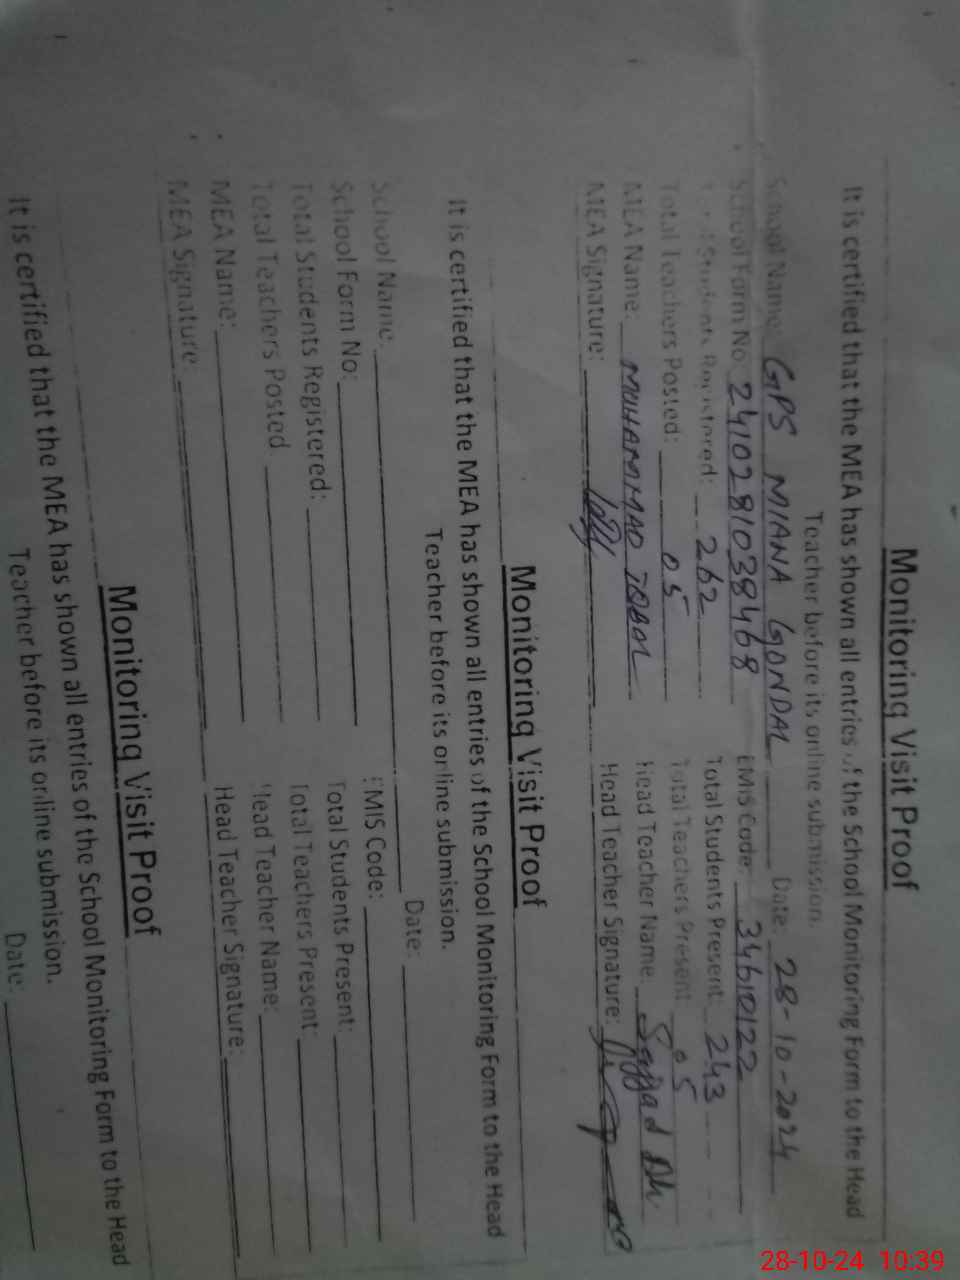 Monitoring Visit Proof
It is certified that the MEA has shown all entries of the School Monitoring Form to the Head
Teacher before its online submission.
School Name: GPS MIANA GONDAL Date: 28-10-2024
School Form No: 2410281038468 EMIS Code: 34610122
Total Students Registered: 262 Total Students Present: 243
Total Teachers Posted: 05 Total Teachers Present 05
MEA Name: MUHAMMAD IQBAL Head Teacher Name: Sajjad
MEA Signature: Head Teacher Signature:
Monitoring Visit Proof
It is certified that the MEA has shown all entries of the School Monitoring Form to the Head
Teacher before its online submission.
School Name: Date:
School Form No: EMIS Code:
Total Students Registered: Total Students Present:
Total Teachers Posted Total Teachers Present
MEA Name: Head Teacher Name:
MEA Signature: Head Teacher Signature:
Monitoring Visit Proof
It is certified that the MEA has shown all entries of the School Monitoring Form to the Head
Teacher before its online submission.
Date:
28-10-24 10:39